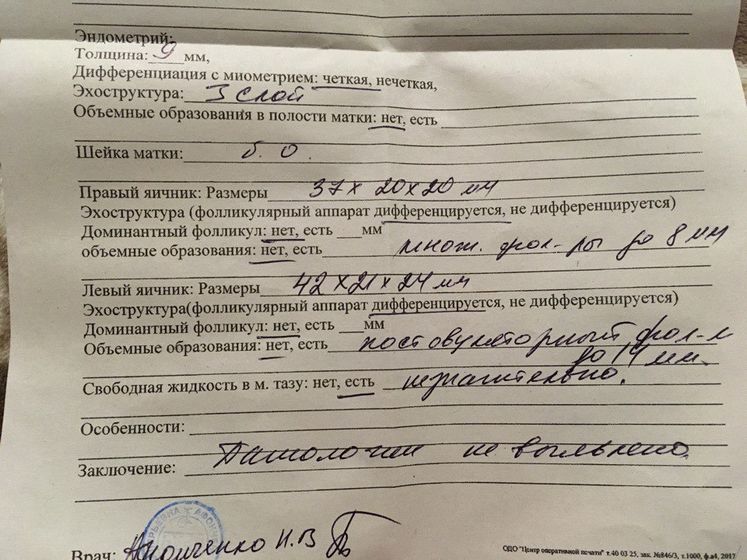 Эндометрий:
Толщина: 9 мм,
Дифференциация с миометрием: четкая, нечеткая,
Эхоструктура: 3 слой
Объемные образования в полости матки: нет, есть
Шейка матки: б. о.
Правый яичник: Размеры 37 х 20 х 20 мм
Эхоструктура (фолликулярный аппарат дифференцируется, не дифференцируется)
Доминантный фолликул: нет, есть ___мм
объемные образования: нет, есть множ. фол-ры до 8 мм
Левый яичник: Размеры 42 х 21 х 24 мм
Эхоструктура(фолликулярный аппарат дифференцируется, не дифференцируется)
Доминантный фолликул: нет, есть ___мм
Объемные образования: нет, есть постовуляторный фол-л
до 14 мм.
Свободная жидкость в м. тазу: нет, есть незначительно.
Особенности:
Заключение: Патологии не выявлено
Врач: И.В
ОДО "Центр оперативной печати" т.40 03 25, зак. №846/3, т.1000, ф.а4, 2017